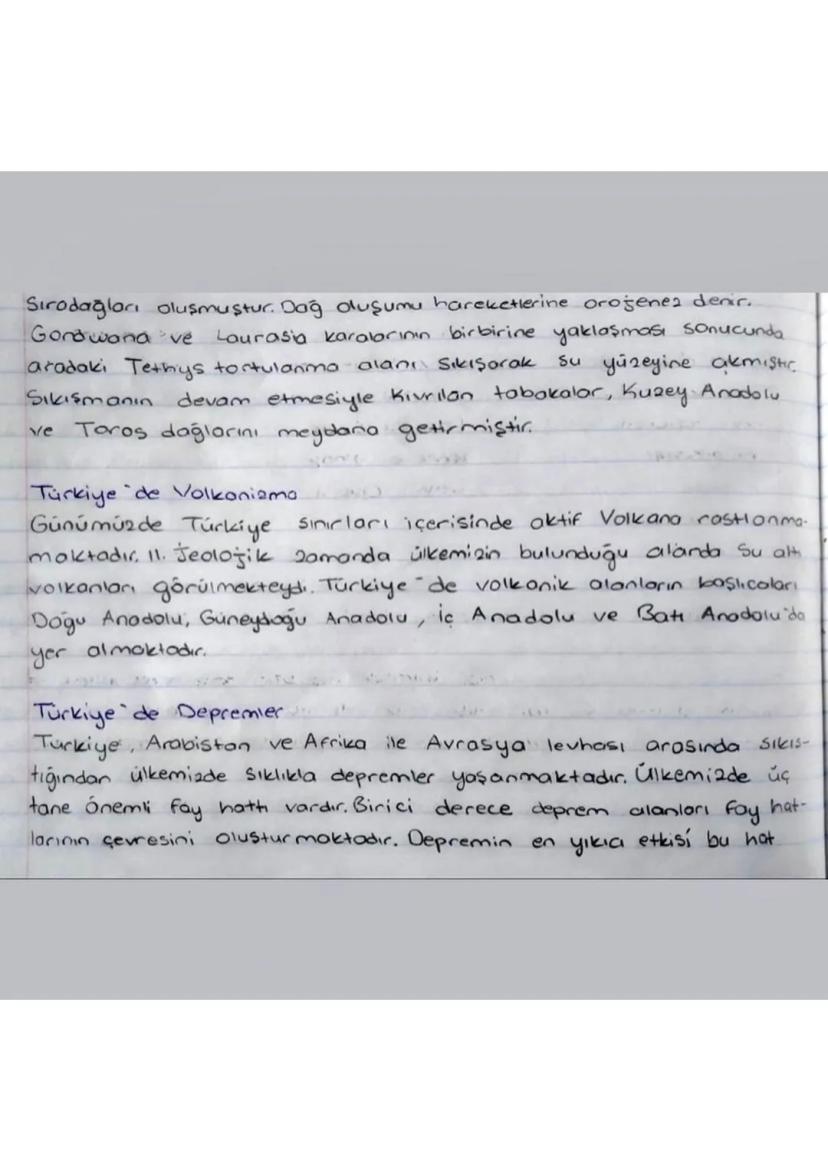 Sıradağları oluşmuştur. Dağ oluşumu hareketlerine orojenez denir.
Gondwana ve Laurasia karalarının birbirine yaklaşması sonucunda
aradaki Tethys tortulanma alanı sıkışarak su yüzeyine çıkmıştır.
Sıkışmanın devam etmesiyle kıvrılan tabakalar, Kuzey Anadolu
ve Toros dağlarını meydana getirmiştir.
Türkiye'de Volkanizma
Günümüzde Türkiye sınırları içerisinde aktif Volkana rastlanma-
maktadır. II. Jeolojik zamanda ülkemizin bulunduğu alanda su altı
volkanları görülmekteydi. Türkiye'de volkanik alanların başlıcaları
Doğu Anadolu, Güneydoğu Anadolu, İç Anadolu ve Batı Anadolu'da
yer almaktadır.
Türkiye'de Depremler
Türkiye, Arabistan ve Afrika ile Avrasya levhası arasında sıkış-
tığından ülkemizde sıklıkla depremler yaşanmaktadır. Ülkemizde üç
tane önemli fay hattı vardır. Birici derece deprem alanları fay hat-
larının çevresini oluşturmaktadır. Depremin en yıkıcı etkisi bu hat